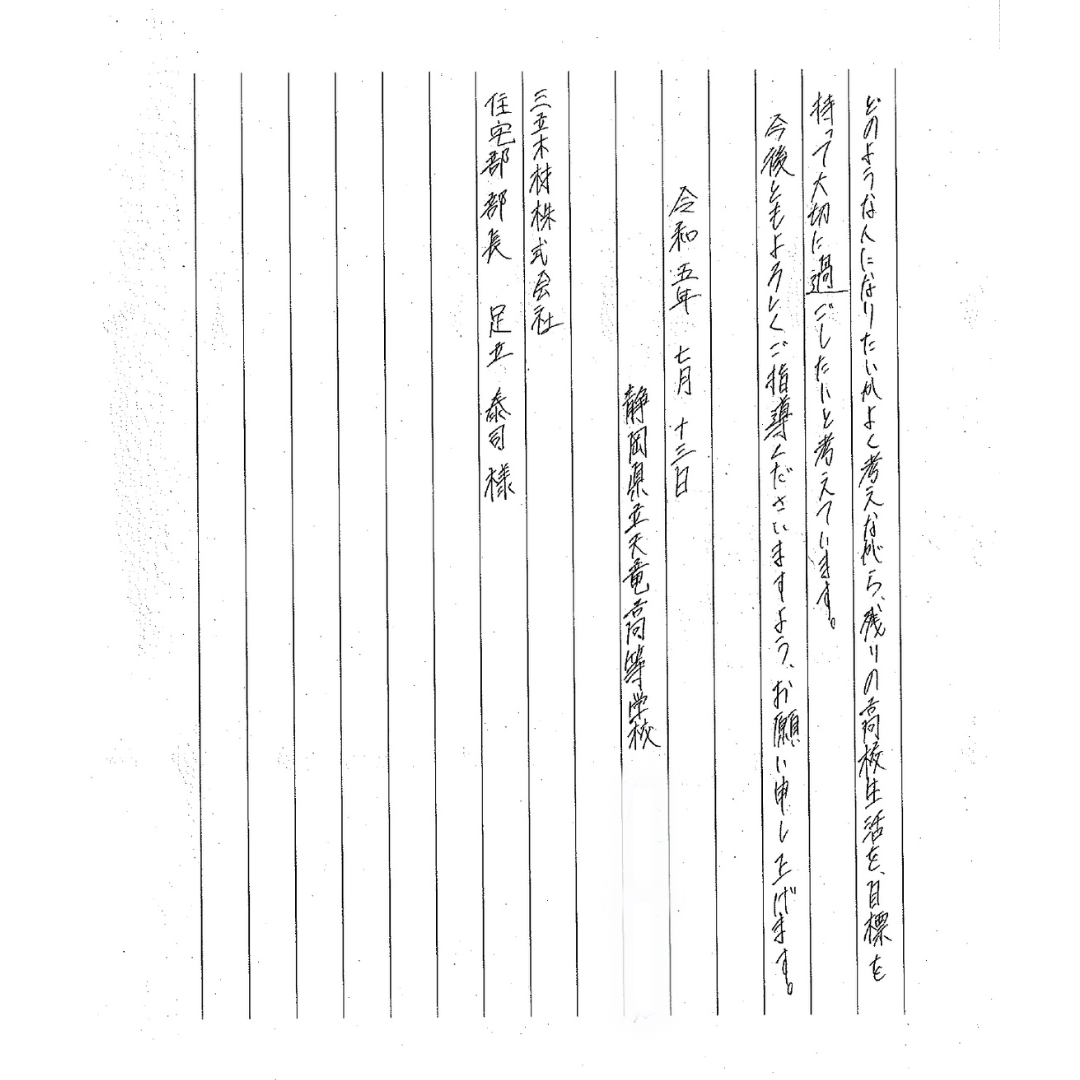 どのような人になりたいかよく考えながら、残りの高校生活を、目標を
持って大切に過ごしたいと考えています。
今後ともよろしくご指導くださいますよう、お願い申し上げます。
令和五年 七月 十三日
静岡県立天竜高等学校
三立木材株式会社
住宅部部長 足立 泰司 様